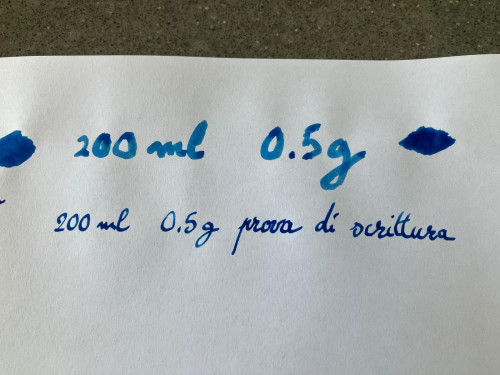 200 ml 0.5g
200 ml 0.5g prova di scrittura